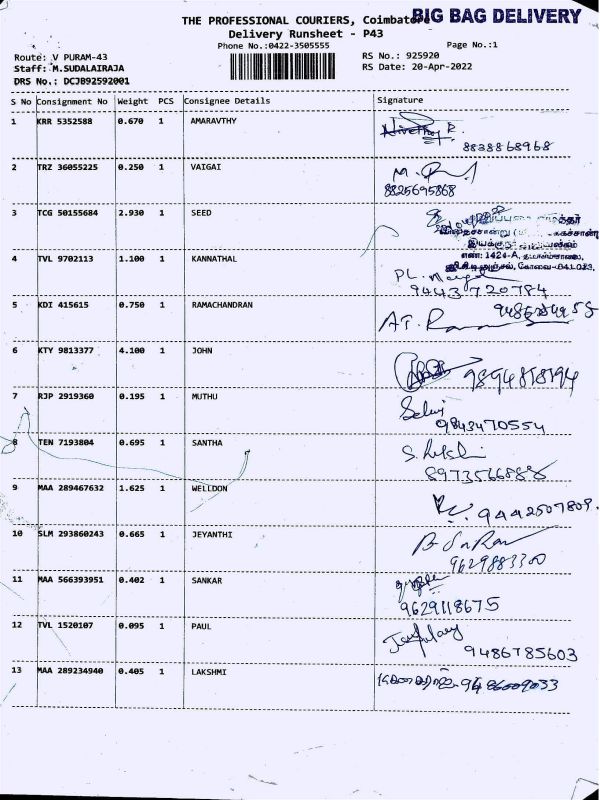 THE PROFESSIONAL COURIERS, Coimbatore
BIG BAG DELIVERY
Delivery Runsheet - P43
Phone No.:0422-3505555
Page No.:1
Route: V PURAM-43
RS No.: 925920
Staff: M.SUDALAIRAJA
RS Date: 20-Apr-2022
DRS No.: DCJB92592001
S No Consignment No Weight PCS Consignee Details Signature
1 KRR 5352588 0.670 1 AMARAVTHY
8838868968
2 TRZ 36055225 0.250 1 VAIGAI
8825695868
3 TCG 50155684 2.930 1 SEED
எண்: 1424-A, தடாகம்சாலை,
கோவை-641 013.
4 TVL 9702113 1.100 1 KANNATHAL
9443720784
5 KDI 415615 0.750 1 RAMACHANDRAN
6 KTY 9813377 4.100 1 JOHN
7 RJP 2919360 0.195 1 MUTHU
Selvi
9843470554
8 TEN 7193804 0.695 1 SANTHA
8973566888
9 MAA 289467632 1.625 1 WELLDON
9442507809.
10 SLM 293860243 0.665 1 JEYANTHI
9629883300
11 MAA 566393951 0.402 1 SANKAR
9629118675
12 TVL 1520107 0.095 1 PAUL
9486785603
13 MAA 289234940 0.405 1 LAKSHMI
9486009033